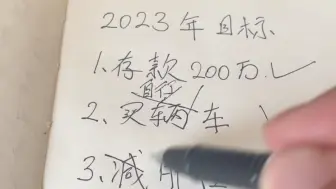 2023年目标
1、存款200万 ✓
自行
2、买辆车
3、减